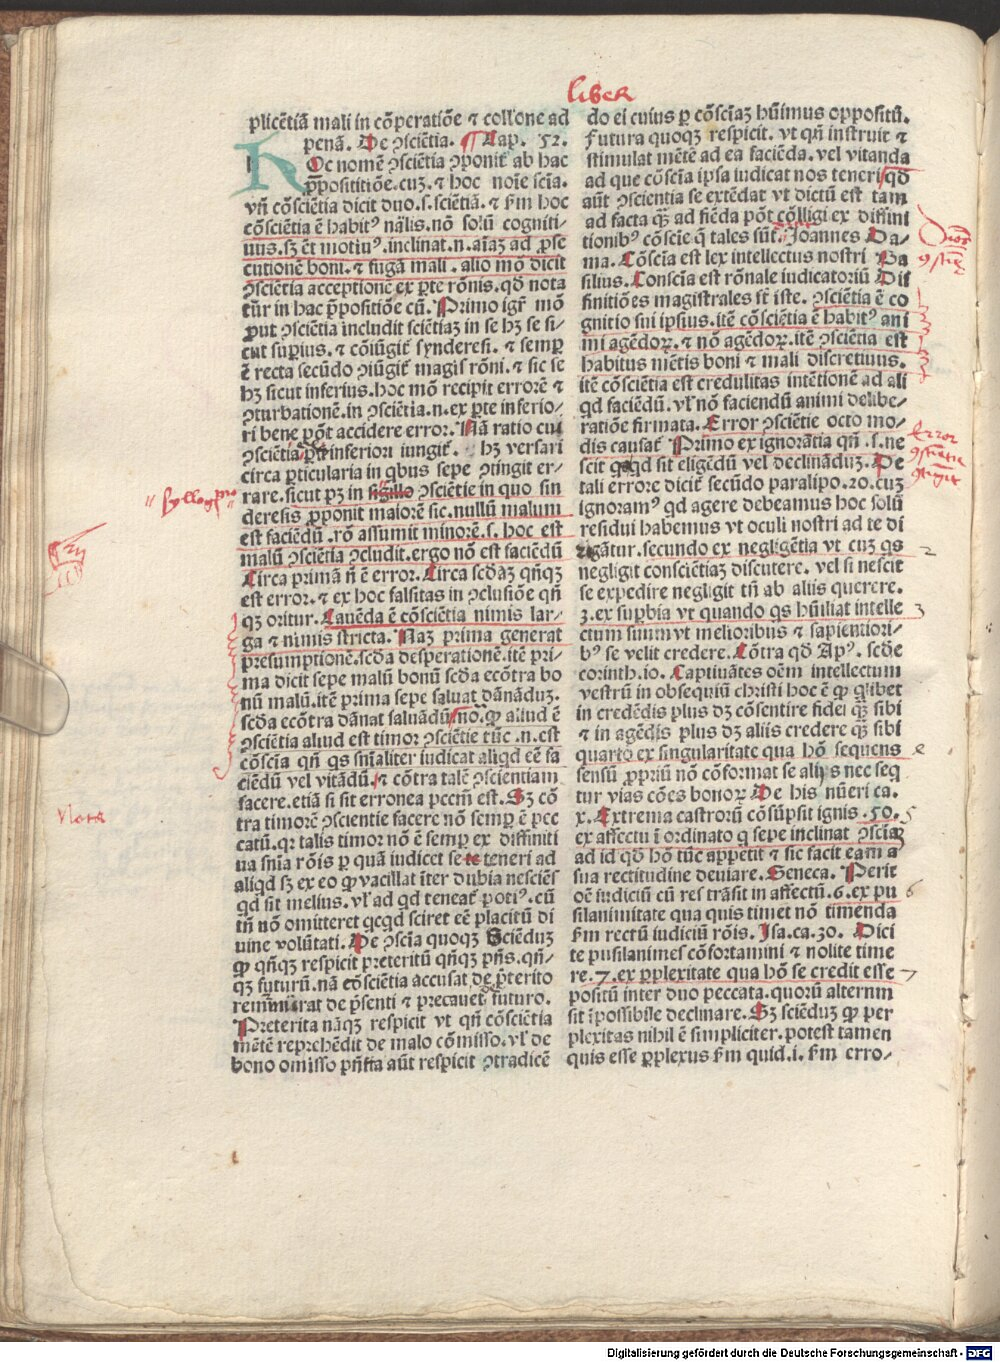 liber
plicētiā mali in cōperatiōe ⁊ collōne ad
penā. De ꝯsciētia. Cap. 52.
Oc nomē ꝯsciētia ꝯponit᷑ ab hac
p̄positiōe.cuꝫ.⁊ hoc noīe scīa.
vñ cōsciētia dicit duo.s.sciētiā.⁊ fm hoc
cōsciētia ē habitꝰ nālis.nō solū cogniti-
uus.sꝫ ēt motiuꝰ.inclinat.n.aīaꝫ ad ꝓse
cutionē boni.⁊ fugā mali.alio mō dicit
ꝯsciētia acceptionē ex ꝑte rōnis.qd̄ nota
tur in hac p̄positiōe cū. Primo igr̄ mō
ꝓut ꝯsciētia includit sciētiaꝫ in se hꝫ se si-
cut suꝑius.⁊ cōiūgit᷑ synderesi.⁊ semꝑ
ē recta secūdo ꝯiūgit᷑ magis rōni.⁊ sic se
hꝫ sicut inferius.hoc mō recipit errorē ⁊
ꝯturbationē.in ꝯsciētia.n.ex ꝑte inferio-
ri bene pōt accidere error. Nā ratio cui
ꝯsciētia inferiori iungit᷑. hꝫ versari
circa ꝑticularia in qbus sepe ꝯtingit er-
rare.sicut pꝫ in sigillo ꝯsciētie in quo sin
deresis ꝓponit maiorē sic.nullū malum
est faciēdū.rō assumit minorē.s.hoc est
malū ꝯsciētia ꝯcludit.ergo nō est faciēdū
Circa primā ñ ē error. Circa scd̄aꝫ qñqꝫ
est error.⁊ ex hoc falsitas in ꝯclusiōe qñ
qꝫ oritur. Cauēda ē cōsciētia nimis lar-
ga ⁊ nimis stricta. Naꝫ prima generat
presumptionē.scd̄a desperationē.itē pri-
ma dicit sepe malū bonū scd̄a ecōtra bo
nū malū.itē prima sepe saluat dānāduꝫ.
scd̄a ecōtra dānat saluādū no. ꝙ aliud ē
ꝯsciētia aliud est timor ꝯsciētie tūc.n.est
cōscīa qñ qs snīaliter iudicat aliqd eē fa
ciēdū vel vitādū.⁊ cōtra talē ꝯscientiam
facere.etiā si sit erronea pccm̄ est. Sꝫ cō
tra timorē ꝯscientie facere nō semꝑ ē pec
catū.qꝛ talis timor nō ē semꝑ ex diffiniti
ua snīa rōis ꝑ quā iudicet se te teneri ad
aliqd sꝫ ex eo ꝙ vacillat īter dubia nesciēs
qd sit melius.vl̓ ad qd teneat᷑ potiꝰ.cū
tñ nō omitteret qcqd sciret eē placitū di
uine volūtati. De ꝯscīa quoqꝫ Sciēduꝫ
ꝙ qñqꝫ respicit preteritū qñqꝫ pñs.qñ-
qꝫ futurū.nā cōsciētia accusat de p̄terito
remurmurat de p̄senti ⁊ precauet futuro.
Preterita nāqꝫ respicit vt qñ cōsciētia
mētē reprehēdit de malo cōmisso.vl̓ de
bono omisso pñtia aūt respicit ꝯtradicē
do ei cuius ꝑ cōscīaꝫ hūimus oppositū.
Futura quoqꝫ respicit.vt qñ instruit ⁊
stimulat mētē ad ea faciēda.vel vitanda
ad que cōscīa ipsa iudicat nos teneri qd̄
aūt ꝯscientia se extēdat vt dictū est tam
ad facta qꝫ ad fiēda pōt cōlligi ex diffini
tionibꝰ cōscīe q̄ tales sūt. Joannes Da-
ma. Cōscīa est lex intellectus nostri Ba
silius. Conscīa est rōnale iudicatoriū Dif
finitiōes magistrales st̄ iste. ꝯsciētia ē co
gnitio sui ipsius.itē cōsciētia ē habitꝰ ani
mi agēdoꝝ.⁊ nō agēdoꝝ.itē ꝯsciētia est
habitus mētis boni ⁊ mali discretiuus.
itē cōsciētia est credulitas intētionē ad ali
qd faciēdū.vl̓ nō faciendū animi delibe-
ratiōe firmata. Error ꝯsciētie octo mo-
dis causat᷑ Primo ex ignorātia qñ.s.ne
scit qd sit eligēdū vel declināduꝫ. De
tali errore dicit᷑ secūdo paralipo.20.cuꝫ
ignoramꝰ qd agere debeamus hoc solū
residui habemus vt oculi nostri ad te di
rigātur.secundo ex negligētia vt cuꝫ qs
negligit conscientiaꝫ discutere.vel si nescit
se expedire negligit tñ ab aliis querere.
3.ex suꝑbia vt quando qs hūiliat intelle
ctum suum vt melioribus ⁊ sapientiori-
bꝰ se velit credere. Cōtra qd Apꝰ.scd̄e
corinth.10. Captiuātes oēm intellectum
vestrū in obsequiū christi hoc ē ꝙ qlibet
in credēdis plus dꝫ cōsentire fidei qꝫ sibi
⁊ in agēdis plus dꝫ aliis credere qꝫ sibi
quarto ex singularitate qua hō sequens
sensū ꝓpriū nō cōformat se aliis nec seq
tur vias cōes bonoꝝ De his nūeri ca.
x. Extrema castrorū cōsūpsit ignis.50.
ex affectu īordinato q sepe inclinat ꝯscīaꝫ
ad id qd̄ hō tūc appetit ⁊ sic facit eam a
sua rectitudine deuiare. Seneca. Perit
oē iudiciū cū res trāsit in affectū.6.ex pu
silanimitate qua quis timet nō timenda
fm rectū iudiciū rōis. Isa.ca.30. Dici
te pusilanimes cōfortamini ⁊ nolite time
re.7.ex ꝑplexitate qua hō se credit esse
positū inter duo peccata.quorū alterum
sit īpossibile declinare. Sꝫ sciēduꝫ ꝙ per
plexitas nihil ē simpliciter.potest tamen
quis esse ꝑplexus fm quid.i. fm erro-
Nota
Error
2
3
5
6
7
Digitalisierung gefördert durch die Deutsche Forschungsgemeinschaft - DFG